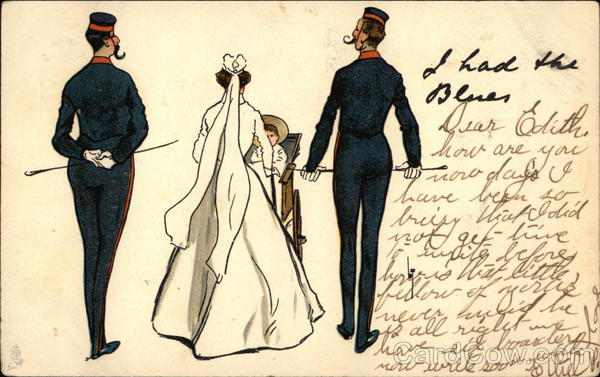 I had the
Blues
Dear Edith.
how are you
now days I
have been so
busy that I did
not get time
to write before
how is that little
fellow of yours
never mind he
is all right we
have boarders
now write soon
Ethel
CardCow.com